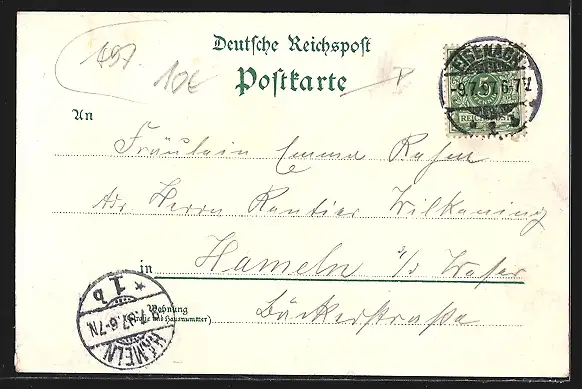 Deutsche Reichspost
Postkarte
10€
An
EISENACH
9.7.97.6-7N
REICHSPOST
Fräulein Emma
Adr Herrn Rentier Wilkening
in Hameln a/d Weser
Wohnung
(Straße und Hausnummer)
Bäckerstraße
HAMELN
1 b